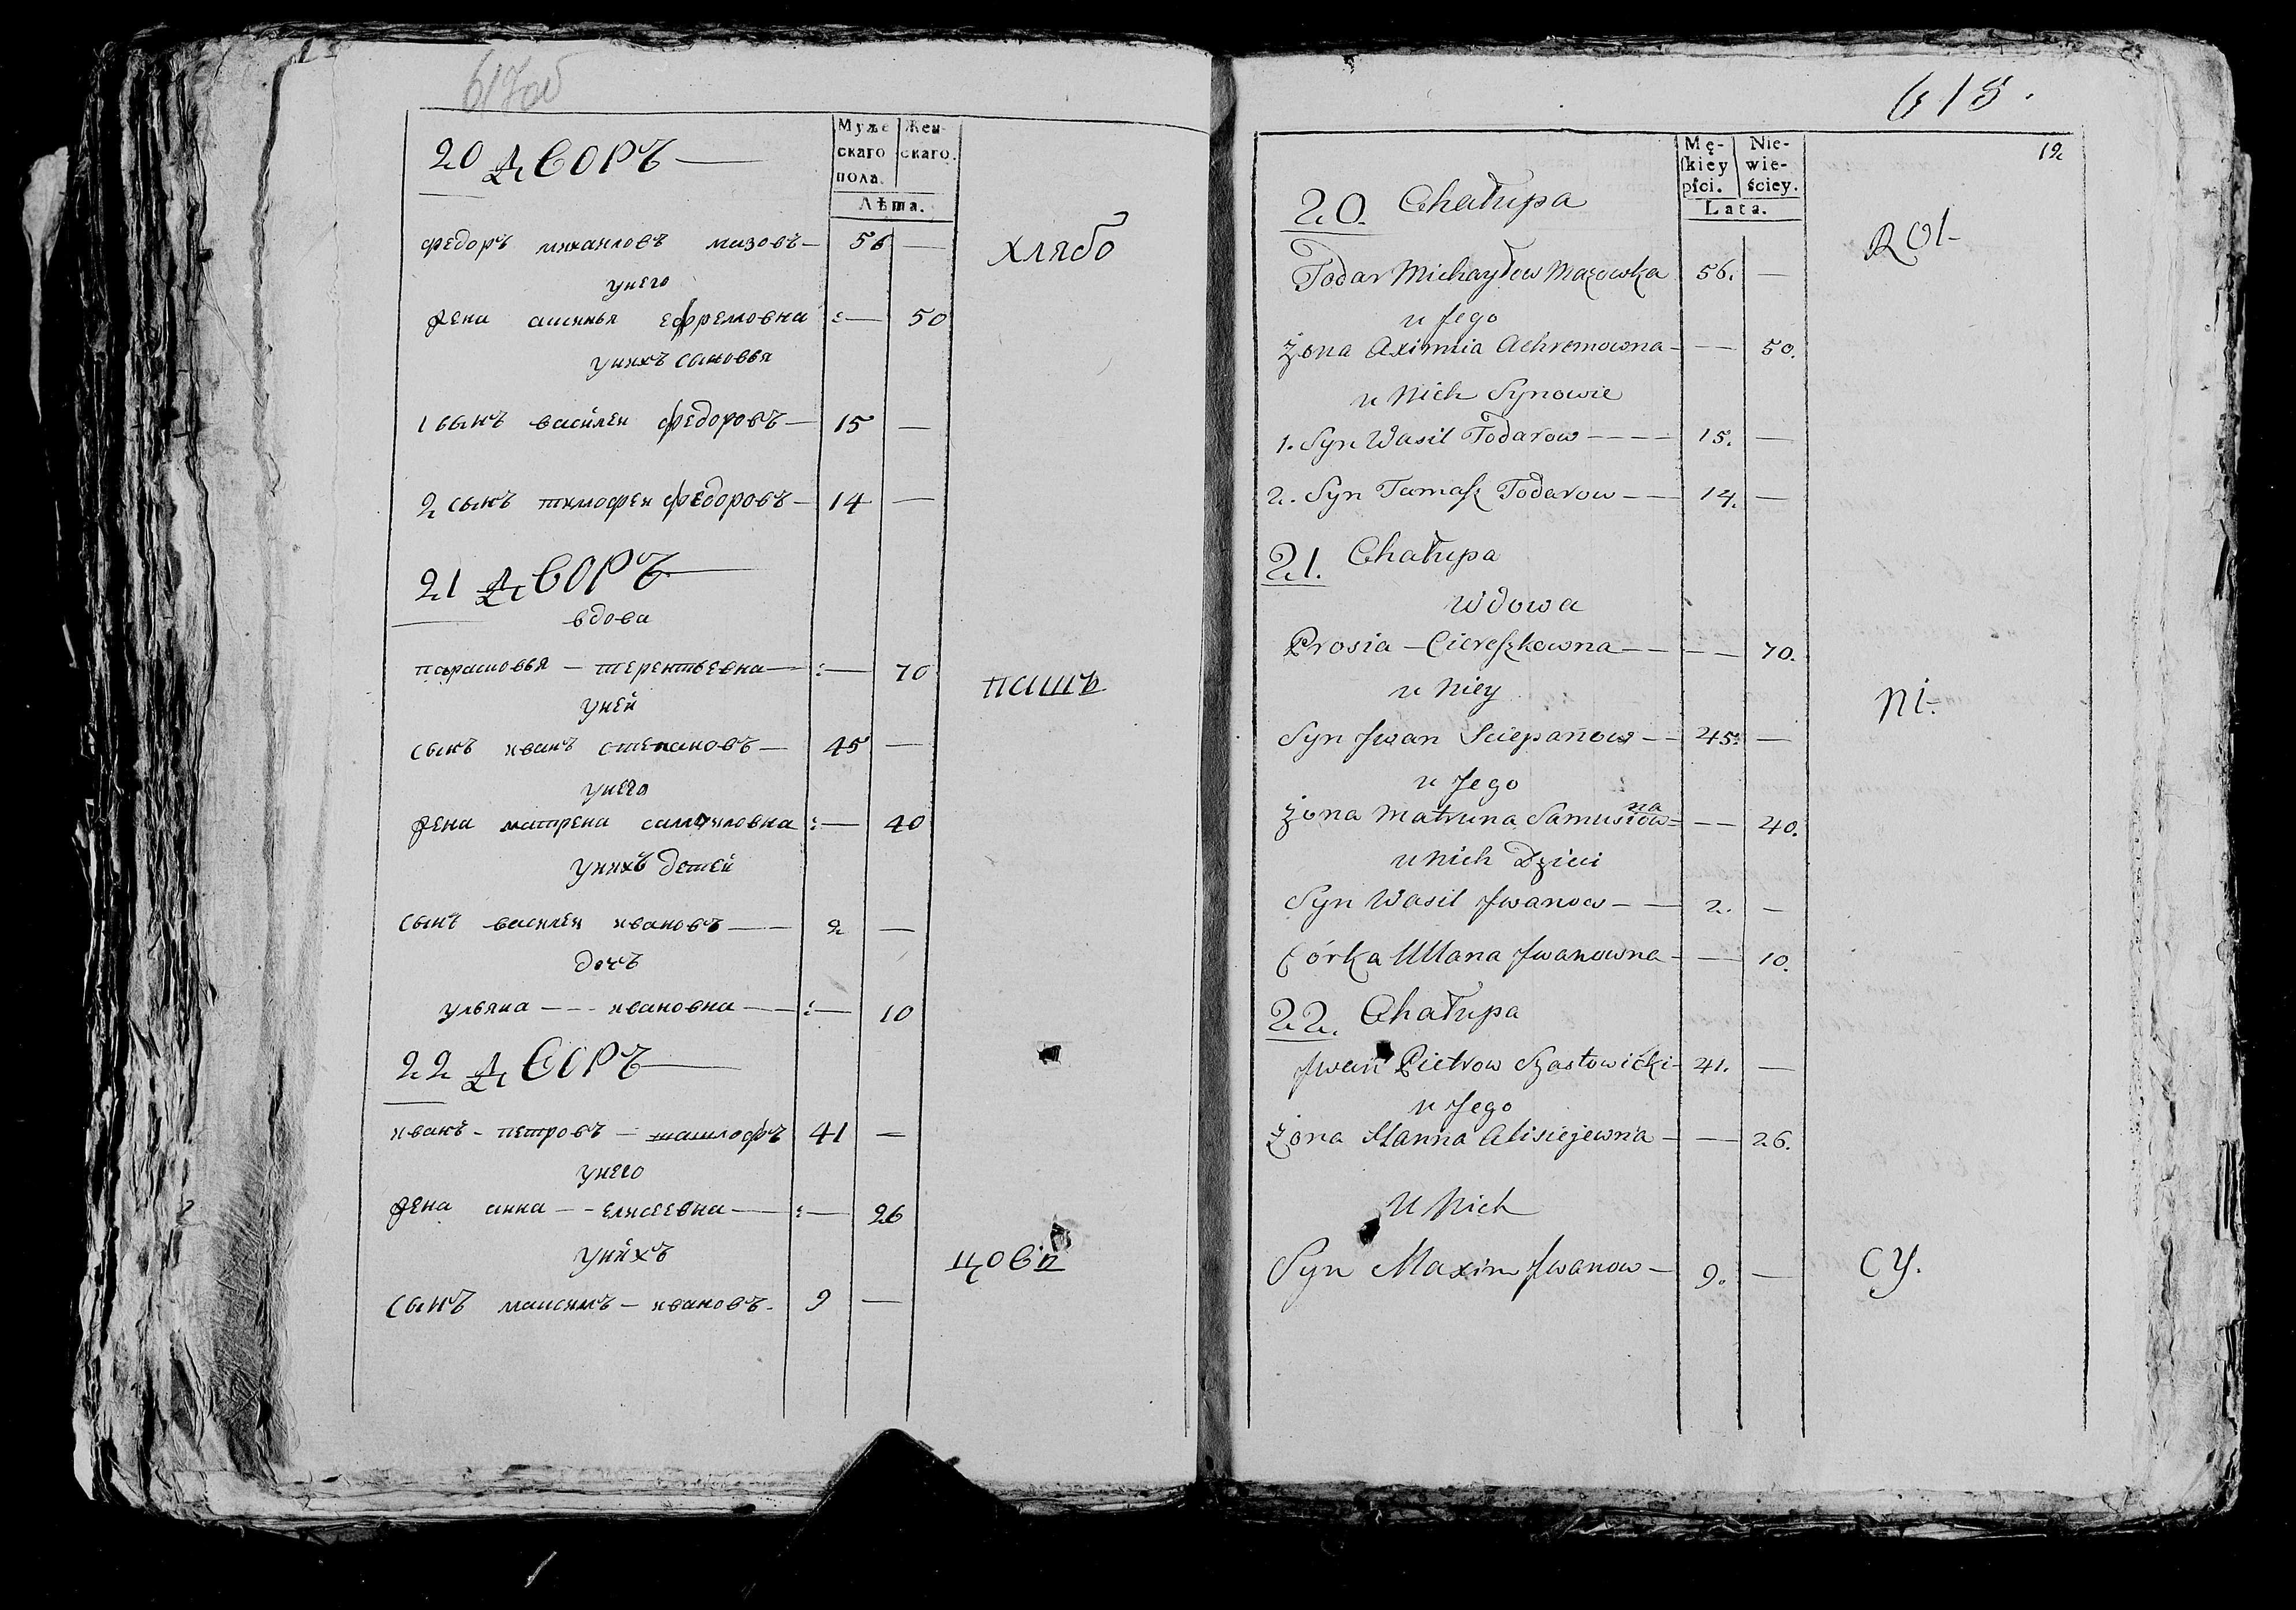 617об
Муже
скаго
пола.
Жен-
скаго.
Лѣта.
20 дворъ —
федоръ михаиловъ мазовъ — 56 —
хлябо
унего
жена аксинья ефремовна :— 50
унихъ сыновья
1 сынъ василеи федоровъ — 15 —
2 сынъ тимофеи федоровъ — 14 —
21 дворъ —
вдова
парасковья — терентьевна — :— 70
пашъ
уней
сынъ иванъ степановъ — 45 —
унего
жена матрена самуиловна :— 40
унихъ детей
сынъ василеи ивановъ — 2 —
дочъ
ульяна — — - ивановна — :— 10
22 дворъ —
иванъ - петровъ — машлофъ 41 —
унего
жена анна — - елисеевна — :— 26
унихъ
цовъ
сынъ максимъ — ивановъ - 9 —
618.
12
Mę-
skiey
płci.
Nie-
wie-
ściey.
Lata.
20. Chałupa
Rol-
Todar Michayłow Mazowka 56. —
u Jego
żona Aximia Achremowna - — 50.
u Nich Synowie
1. Syn Wasil Todarow - - - - 15. —
2. Syn Tumasz Todarow - — 14. —
21. Chałupa
Wdowa
Prosia — Ciereszkowna — - — 70.
u Niey
ni-
Syn Jwan Sciepanow — 45. —
u Jego
żona Matruna Samusiow=na — 40.
u Nich Dzieci
Syn Wasil Jwanow - — 2. —
Córka Ullana Jwanowna - — 10.
22. Chałupa
Jwan Pietrow Szasłowicki - 41. —
u Jego
żona Hanna Alisiejewna - — 26.
u Nich
Syn Maxim Jwanow — 9. —
cy.